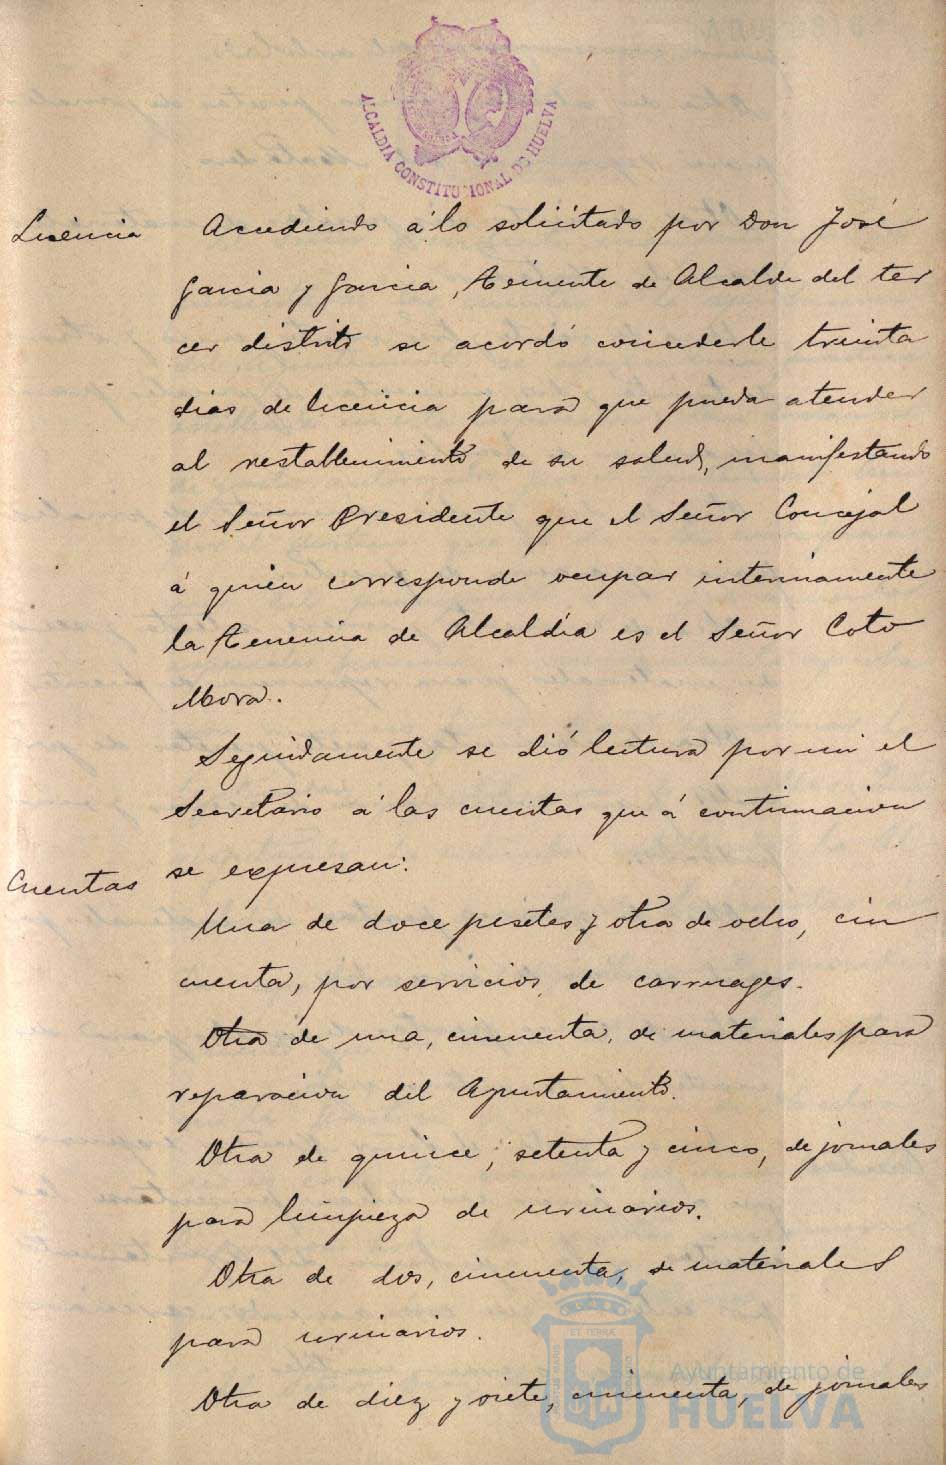 ALCALDIA CONSTITUCIONAL DE HUELVA
Licencia
Accediendo á lo solicitado por Don José
Garcia y Garcia, Teniente de Alcalde del ter
cer distrito se acordó concederle treinta
dias de licencia para que pueda atender
al restablecimiento de su salud, manifestando
el Señor Presidente que el Señor Concejal
á quien corresponde ocupar interinamente
la Tenencia de Alcaldía es el Señor Coto
Mora.
Seguidamente se dió lectura por mi el
Secretario á las cuentas que á continuacion
se expresan:
Cuentas
Una de doce pesetas y otra de ocho, cin
cuenta, por servicios de carruages.
Otra de una, cincuenta, de materiales para
reparacion del Ayuntamiento.
Otra de quince, setenta y cinco, de jornales
para limpieza de urinarios.
Otra de dos, cincuenta, de materiales
para urinarios.
Otra de diez y siete, cincuenta, de jornales
Ayuntamiento de
HUELVA